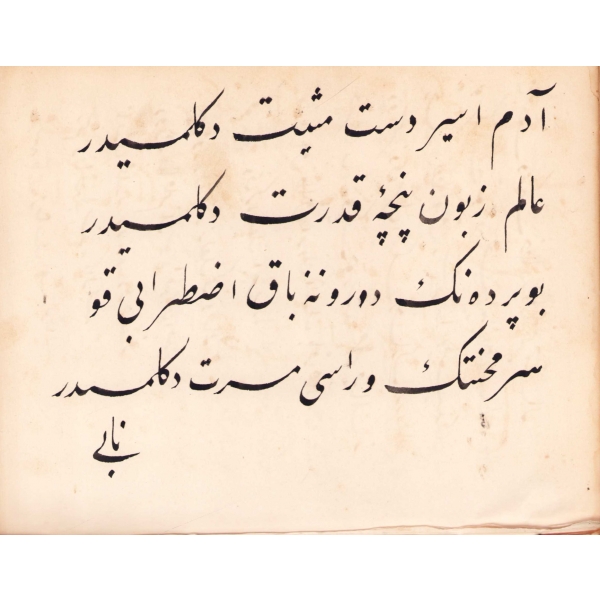 آدم اسیر دست مشیت دكلمیدر
عالم زبون پنجۀ قدرت دكلمیدر
بو پرده نك درونه باق اضطرابی قو
سر محنتك وراسی مسرت دكلمیدر
نابی